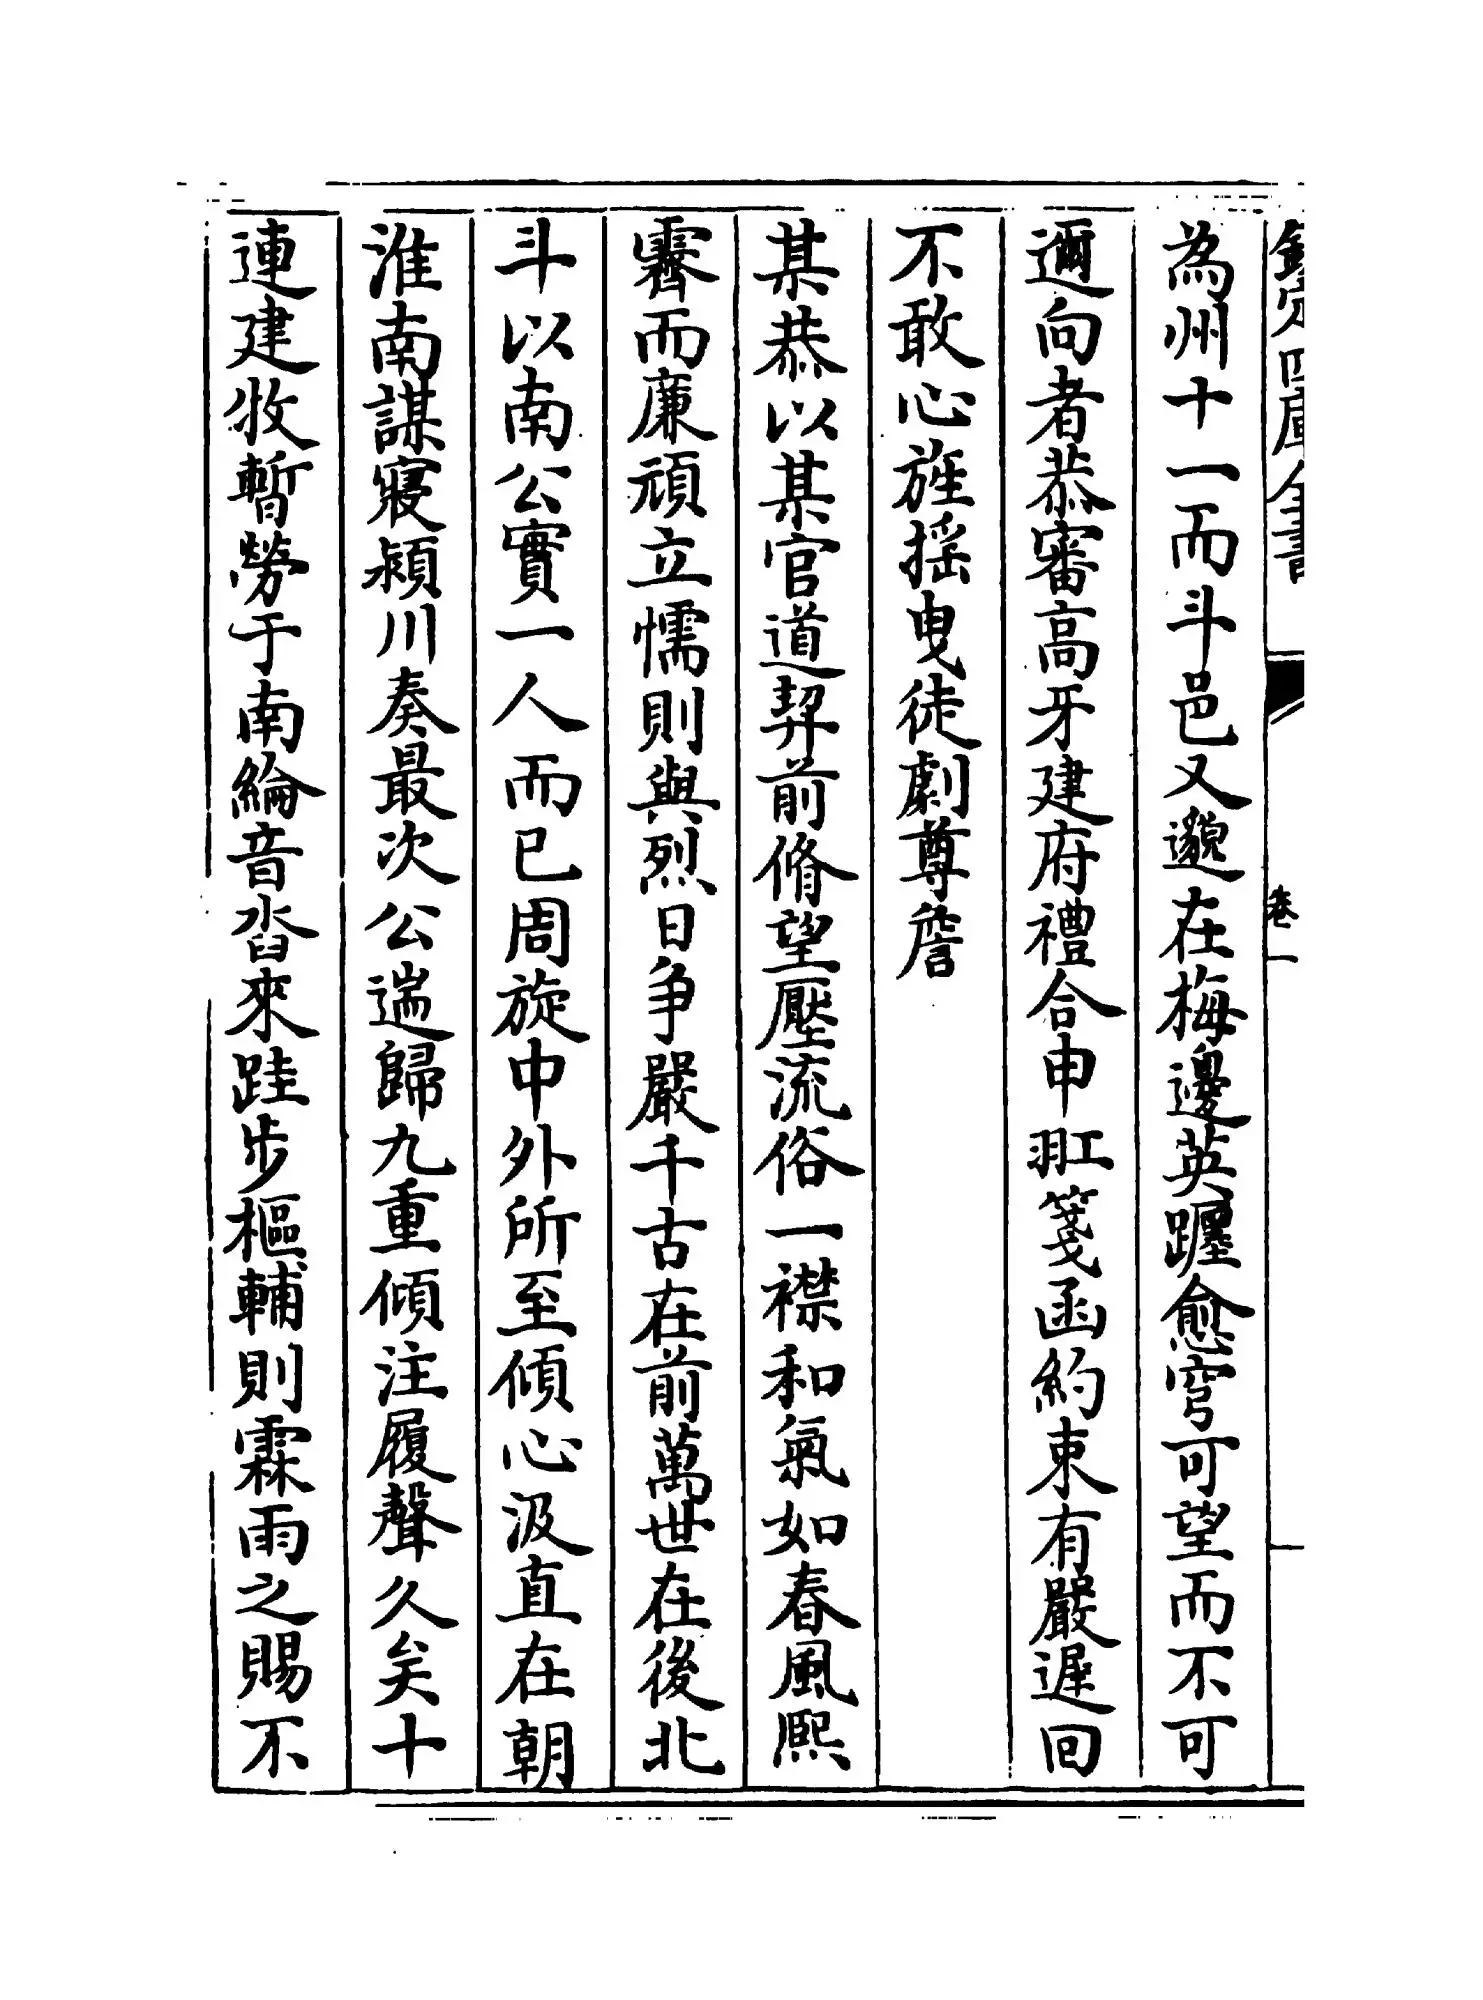 欽定四庫全書
卷一
為州十一而斗邑又邈在梅邊英躔愈穹可望而不可
邇向者恭審高牙建府禮合申缸箋函約束有嚴遲回
不敢心旌搖曳徒劇尊詹
某恭以某官道契前脩望壓流俗一襟和氣如春風熙
霽而廉頑立懦則與烈日爭嚴千古在前萬世在後北
斗以南公實一人而已周旋中外所至傾心汲直在朝
淮南謀寢潁川奏最次公遄歸九重傾注履聲久矣十
連建牧暫勞于南綸音沓來跬步樞輔則霖雨之賜不